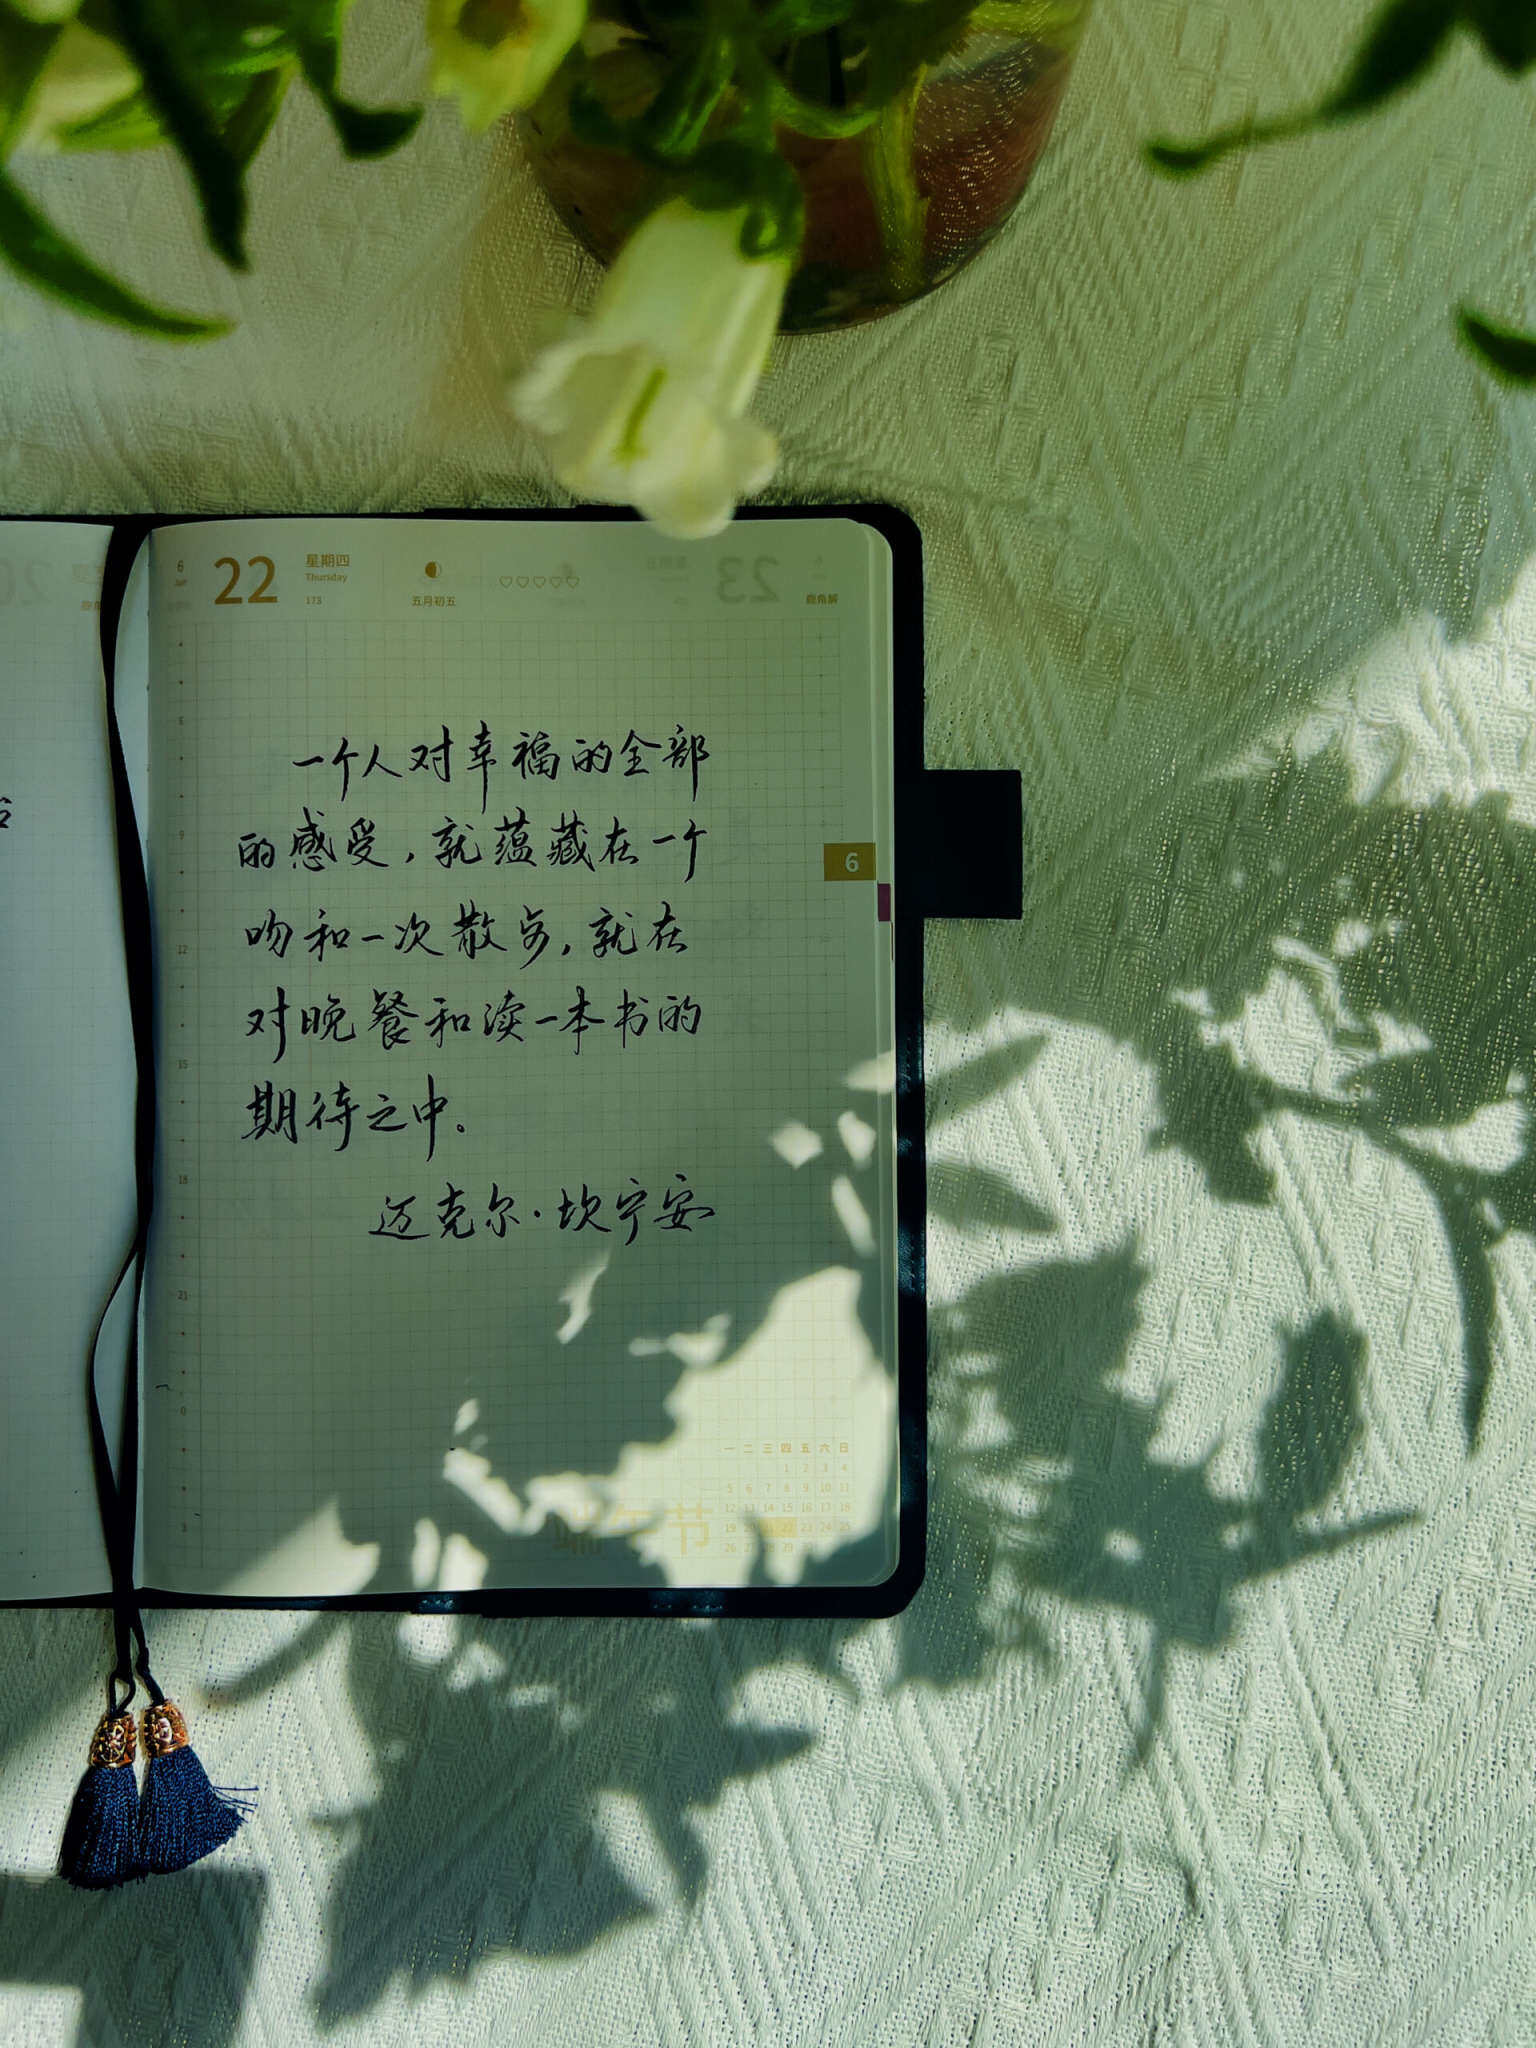 6
Jun
22
星期四
Thursday
173
五月初五
♡♡♡♡♡
一个人对幸福的全部
的感受，就蕴藏在一个
吻和一次散步，就在
对晚餐和读一本书的
期待之中。
迈克尔·坎宁安
6
9
12
15
18
21
0
3
6
端午节
一 二 三 四 五 六 日
1 2 3 4
5 6 7 8 9 10 11
12 13 14 15 16 17 18
19 20 21 22 23 24 25
26 27 28 29 30
23
鹿角解